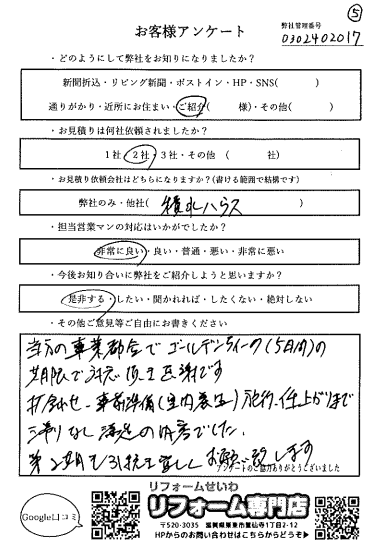 ⑤
お客様アンケート
弊社管理番号
0302402017
・どのようにして弊社をお知りになりましたか？
新聞折込・リビング新聞・ポストイン・HP・SNS(　　　)
通りがかり・近所にお住まい・ご紹介(　　　様)・その他(　　　)
・お見積りは何社依頼されましたか？
1社・2社・3社・その他　(　　　社)
・お見積り依頼会社はどちらになりますか？(書ける範囲で結構です)
弊社のみ・他社(　積水ハウス　)
・担当営業マンの対応はいかがでしたか？
非常に良い・良い・普通・悪い・非常に悪い
・今後お知り合いに弊社をご紹介しようと思いますか？
是非する・したい・聞かれれば・したくない・絶対しない
・その他ご意見等ご自由にお書きください
当方の事業都合でゴールデンウィーク(5日間)の
期限で対応頂き感謝です
打合わせ〜事前準備(室内養生)施行、仕上がりまで
滞りなし満足の内容でした。
第2期も引続き宜しくお願い致します
アンケートのご協力ありがとうございました
Google口コミ
リフォームせいわ
リフォーム専門店
〒520-3035　滋賀県栗東市霊仙寺1丁目2-12
HPからのお問い合わせはこちらからどうぞ➤